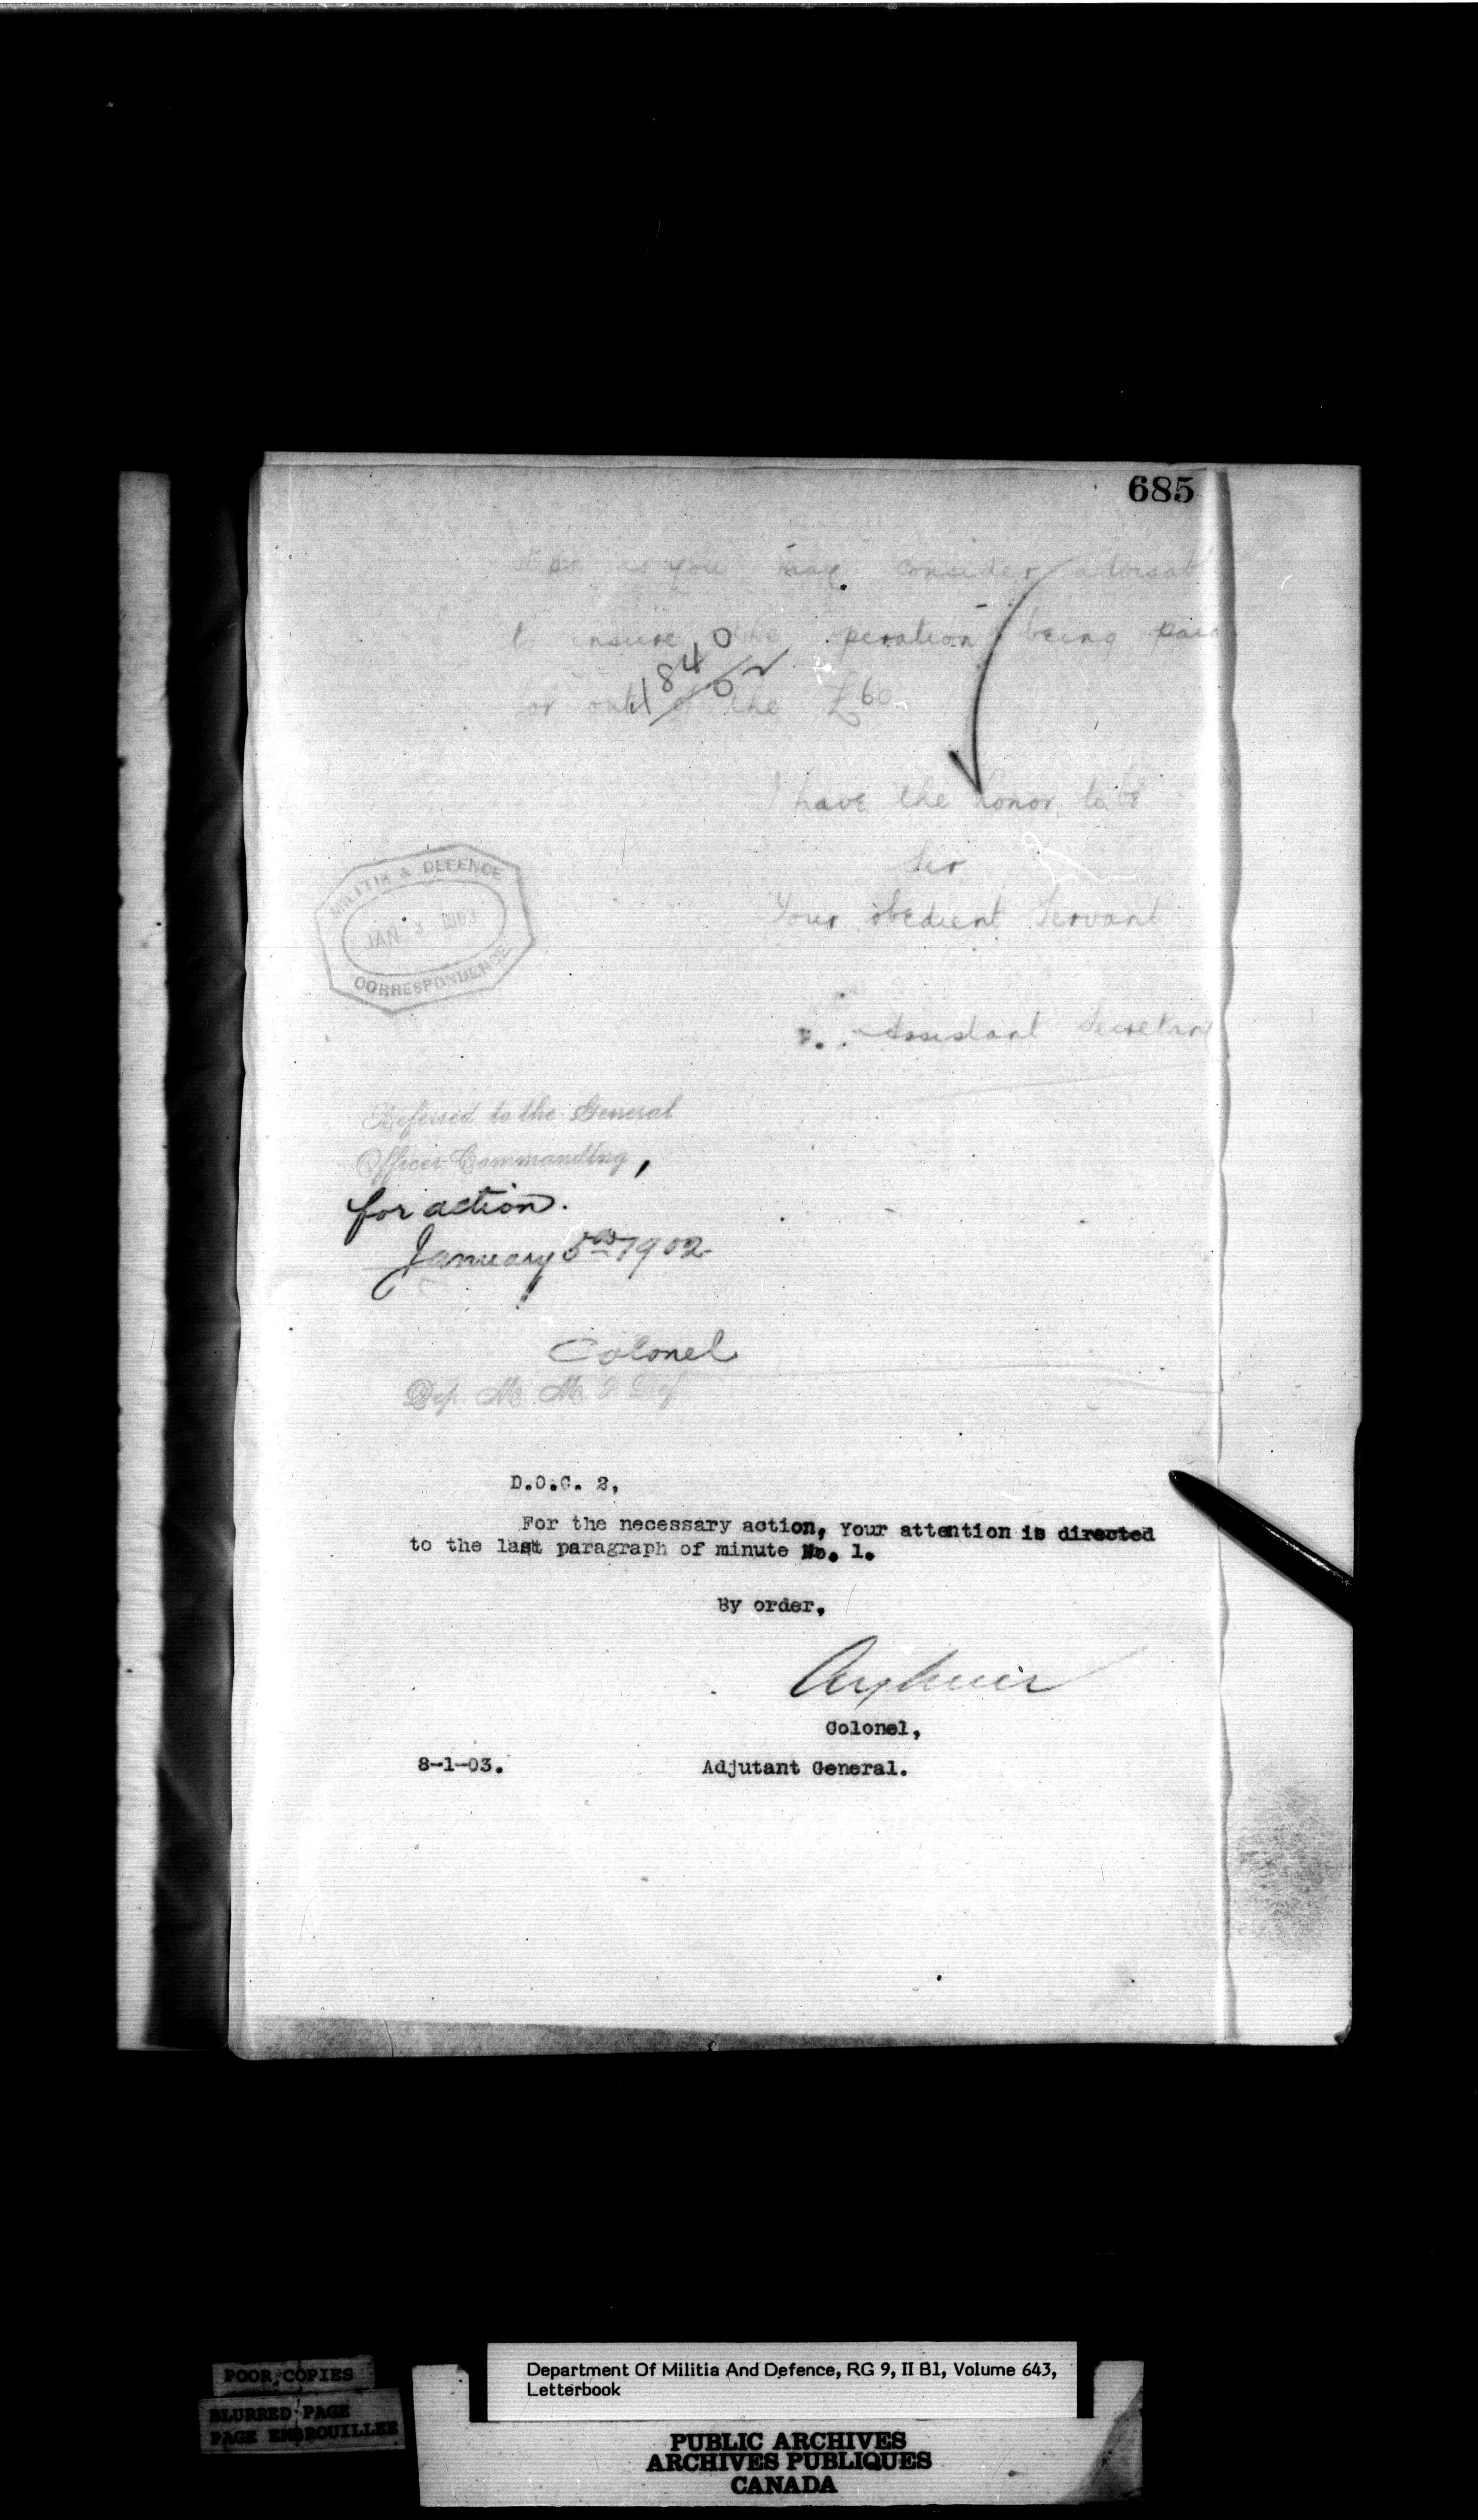 685
as you may consider advisab
to ensure the operation being paid
1840
02
for out of the £60.
I have the honor to be
Sir
Your obedient Servant
MILITIA & DEFENCE
JAN 3 1903
CORRESPONDENCE
Assistant Secretary
Referred to the General
Officer Commanding,
for action.
January 5 1902
Colonel
Dep. M. M. & Def.
D.O.C. 2,
For the necessary action, Your attention is directed
to the last paragraph of minute No. 1.
By order,
Colonel,
8-1-03. Adjutant General.
POOR COPIES
BLURRED PAGE
PAGE EMBROUILLEE
Department Of Militia And Defence, RG 9, II B1, Volume 643,
Letterbook
PUBLIC ARCHIVES
ARCHIVES PUBLIQUES
CANADA